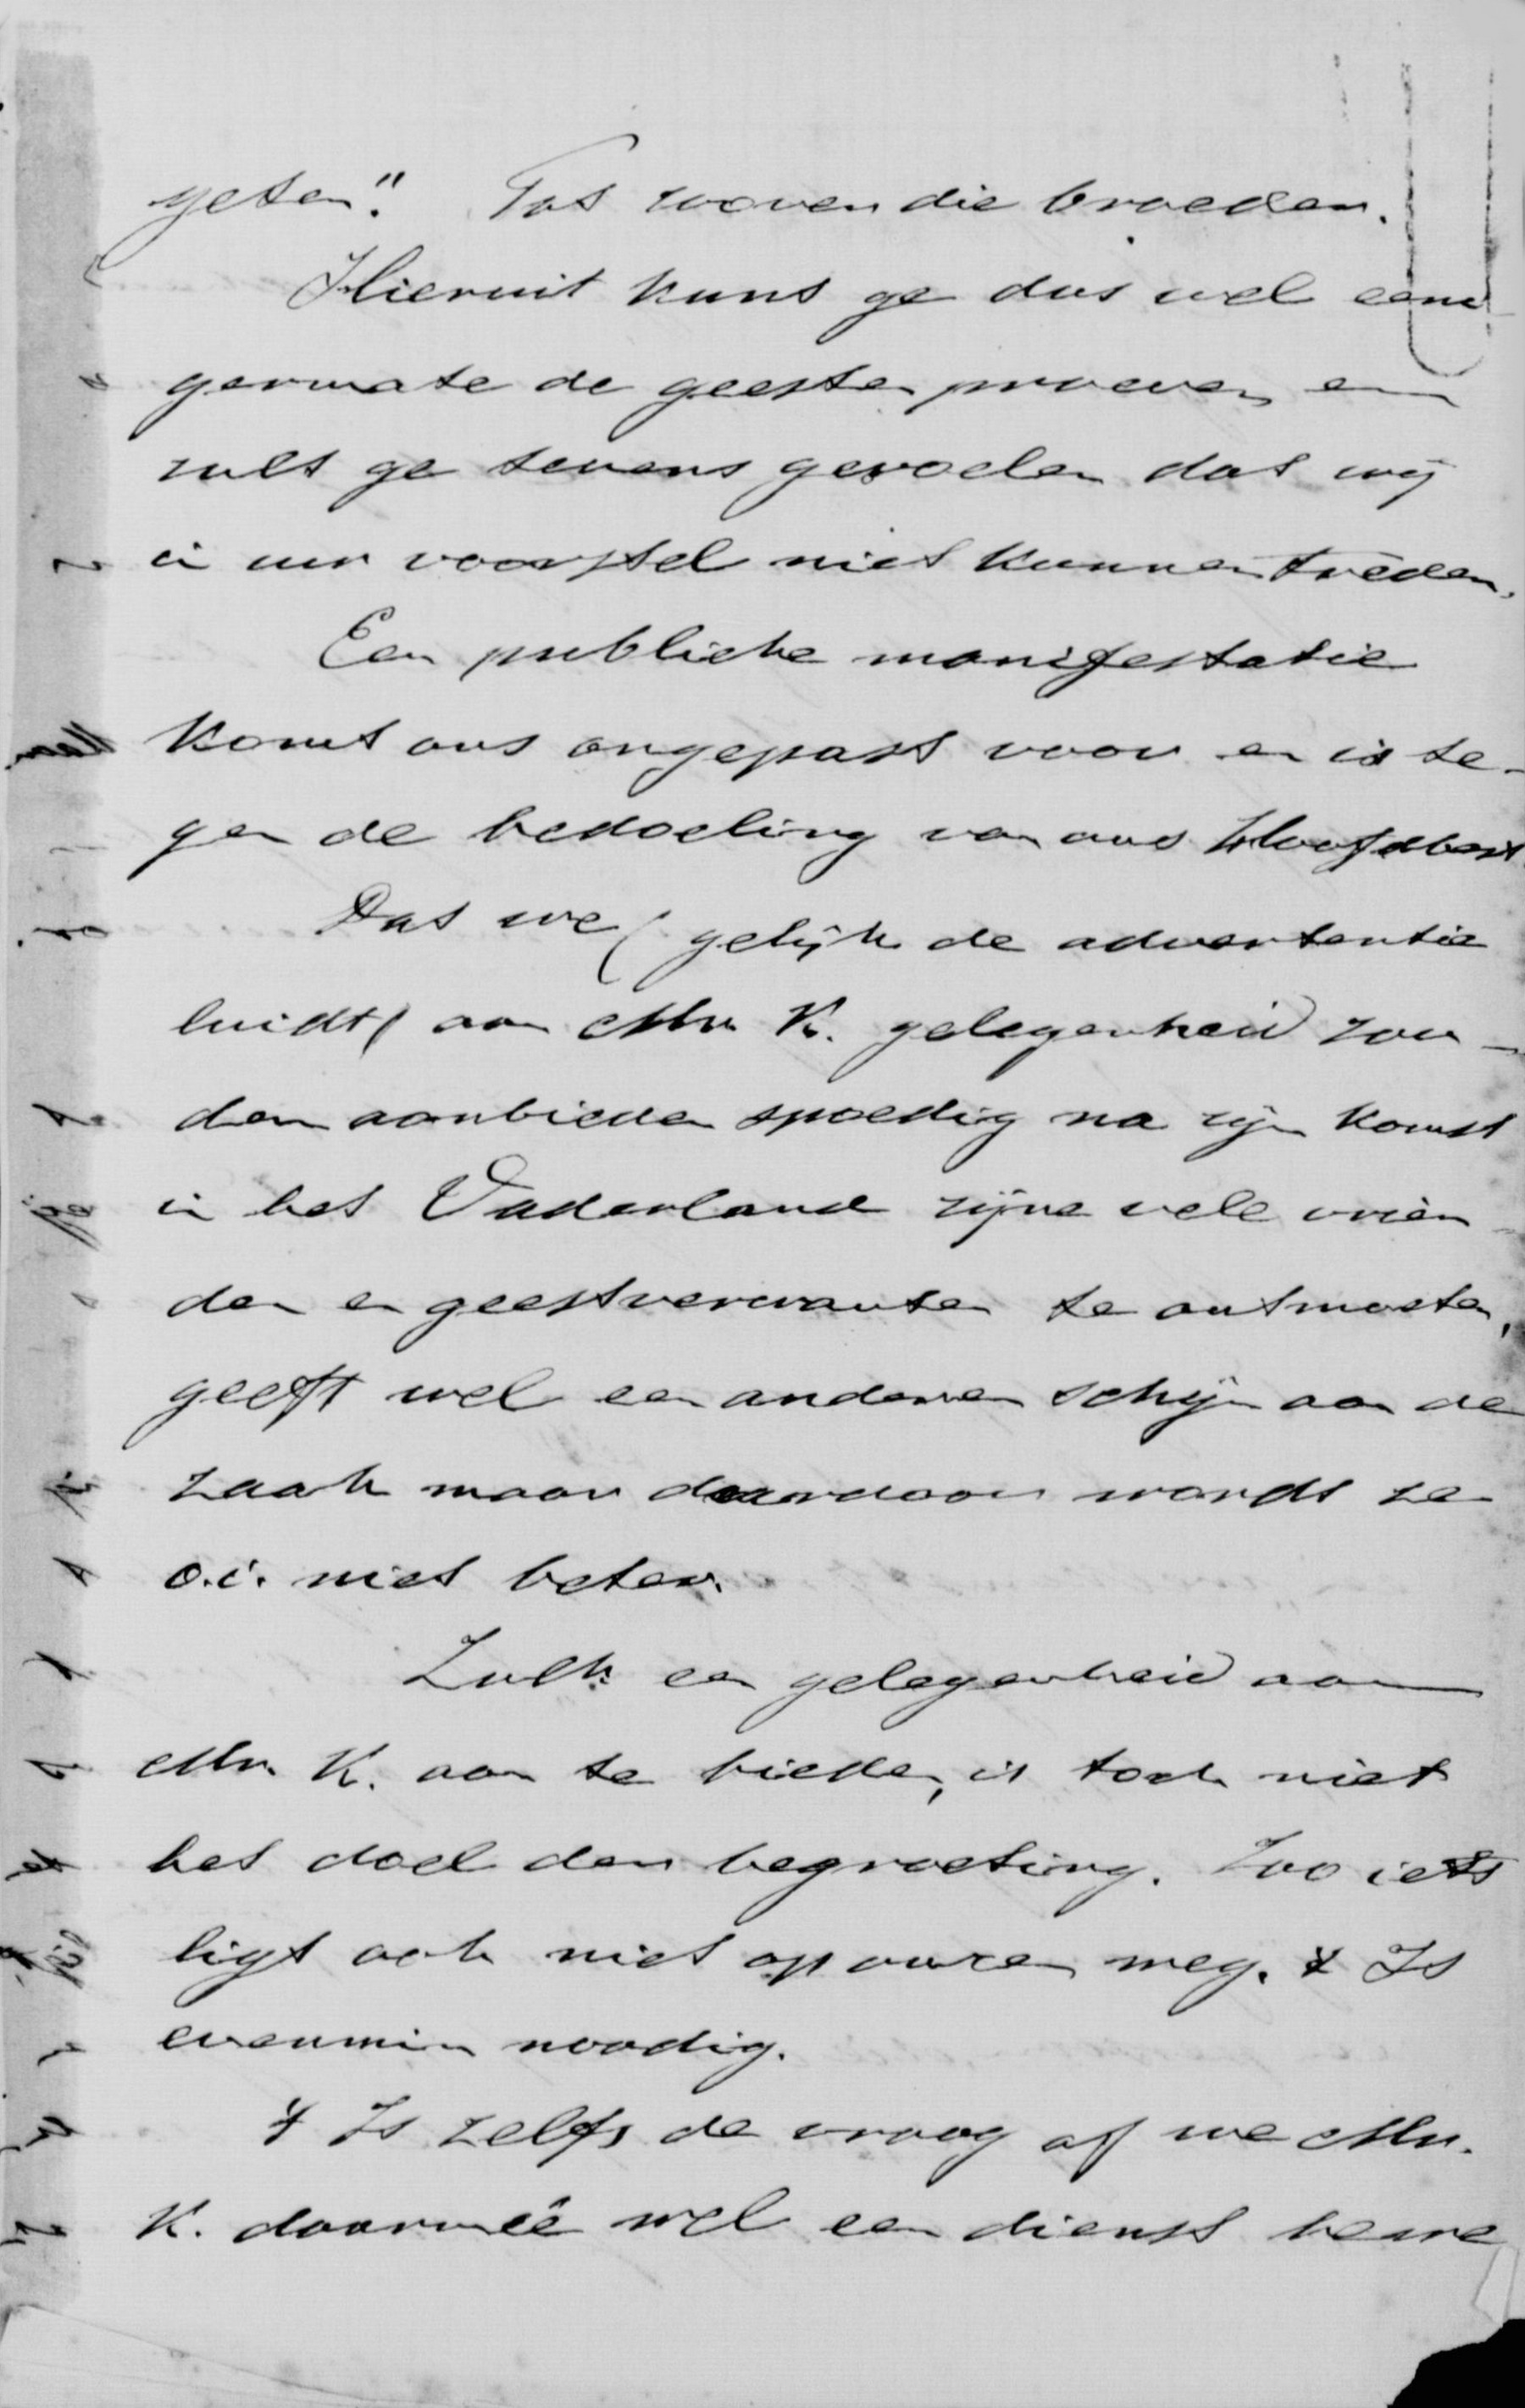 geten." Tot zooven die broeders.
Hieruit kunt ge dus wel eeni
germate de geesten proeven en
zult ge tevens gevoelen dat wij
in uw voorstel niet kunnen treden.
Een publieke manifestatie
komt ons ongepast voor en is te-
gen de bedoeling van ons Hoofdbest
Dat we (gelijk de advertentie
luidt) aan Mr. K. gelegenheid zou-
den aanbieden spoedig na zijn komst
in het Vaderland zijne vele vrien
den en geestverwanten te ontmoeten,
geeft wel een anderen schijn aan de
zaak maar daardoor wordt ze
o.i. niet beter.
Zulk een gelegenheid aan
Mr. K. aan te bieden, is toch niet
het doel den begroeting. Zoo iets
ligt ook niet op onzen weg. 't Is
evenmin noodig.
't Is zelfs de vraag of we Mr.
K. daarmeê wel een dienst bewe